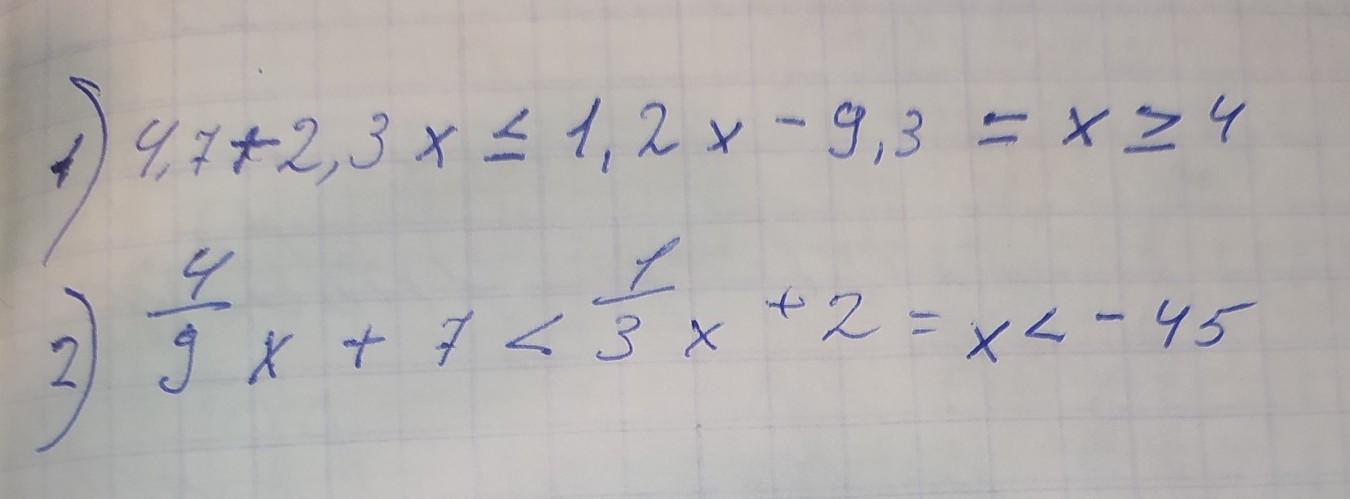 1) 4,7+2,3x ≤ 1,2x - 9,3 = x ≥ 4
2) 4/9 x + 7 < 1/3 x + 2 = x < - 45